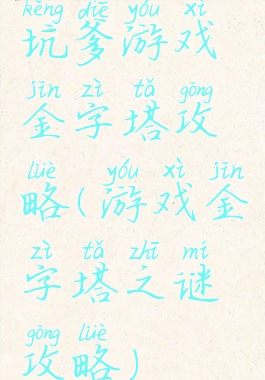 kēng diē yóu xì
坑爹游戏
jīn zì tǎ gōng
金字塔攻
lüè yóu xì jīn
略(游戏金
zì tǎ zhī mí
字塔之谜
gōng lüè
攻略)